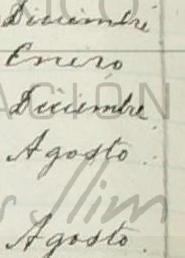 Diciembre
Enero
Diciembre
Agosto
Agosto